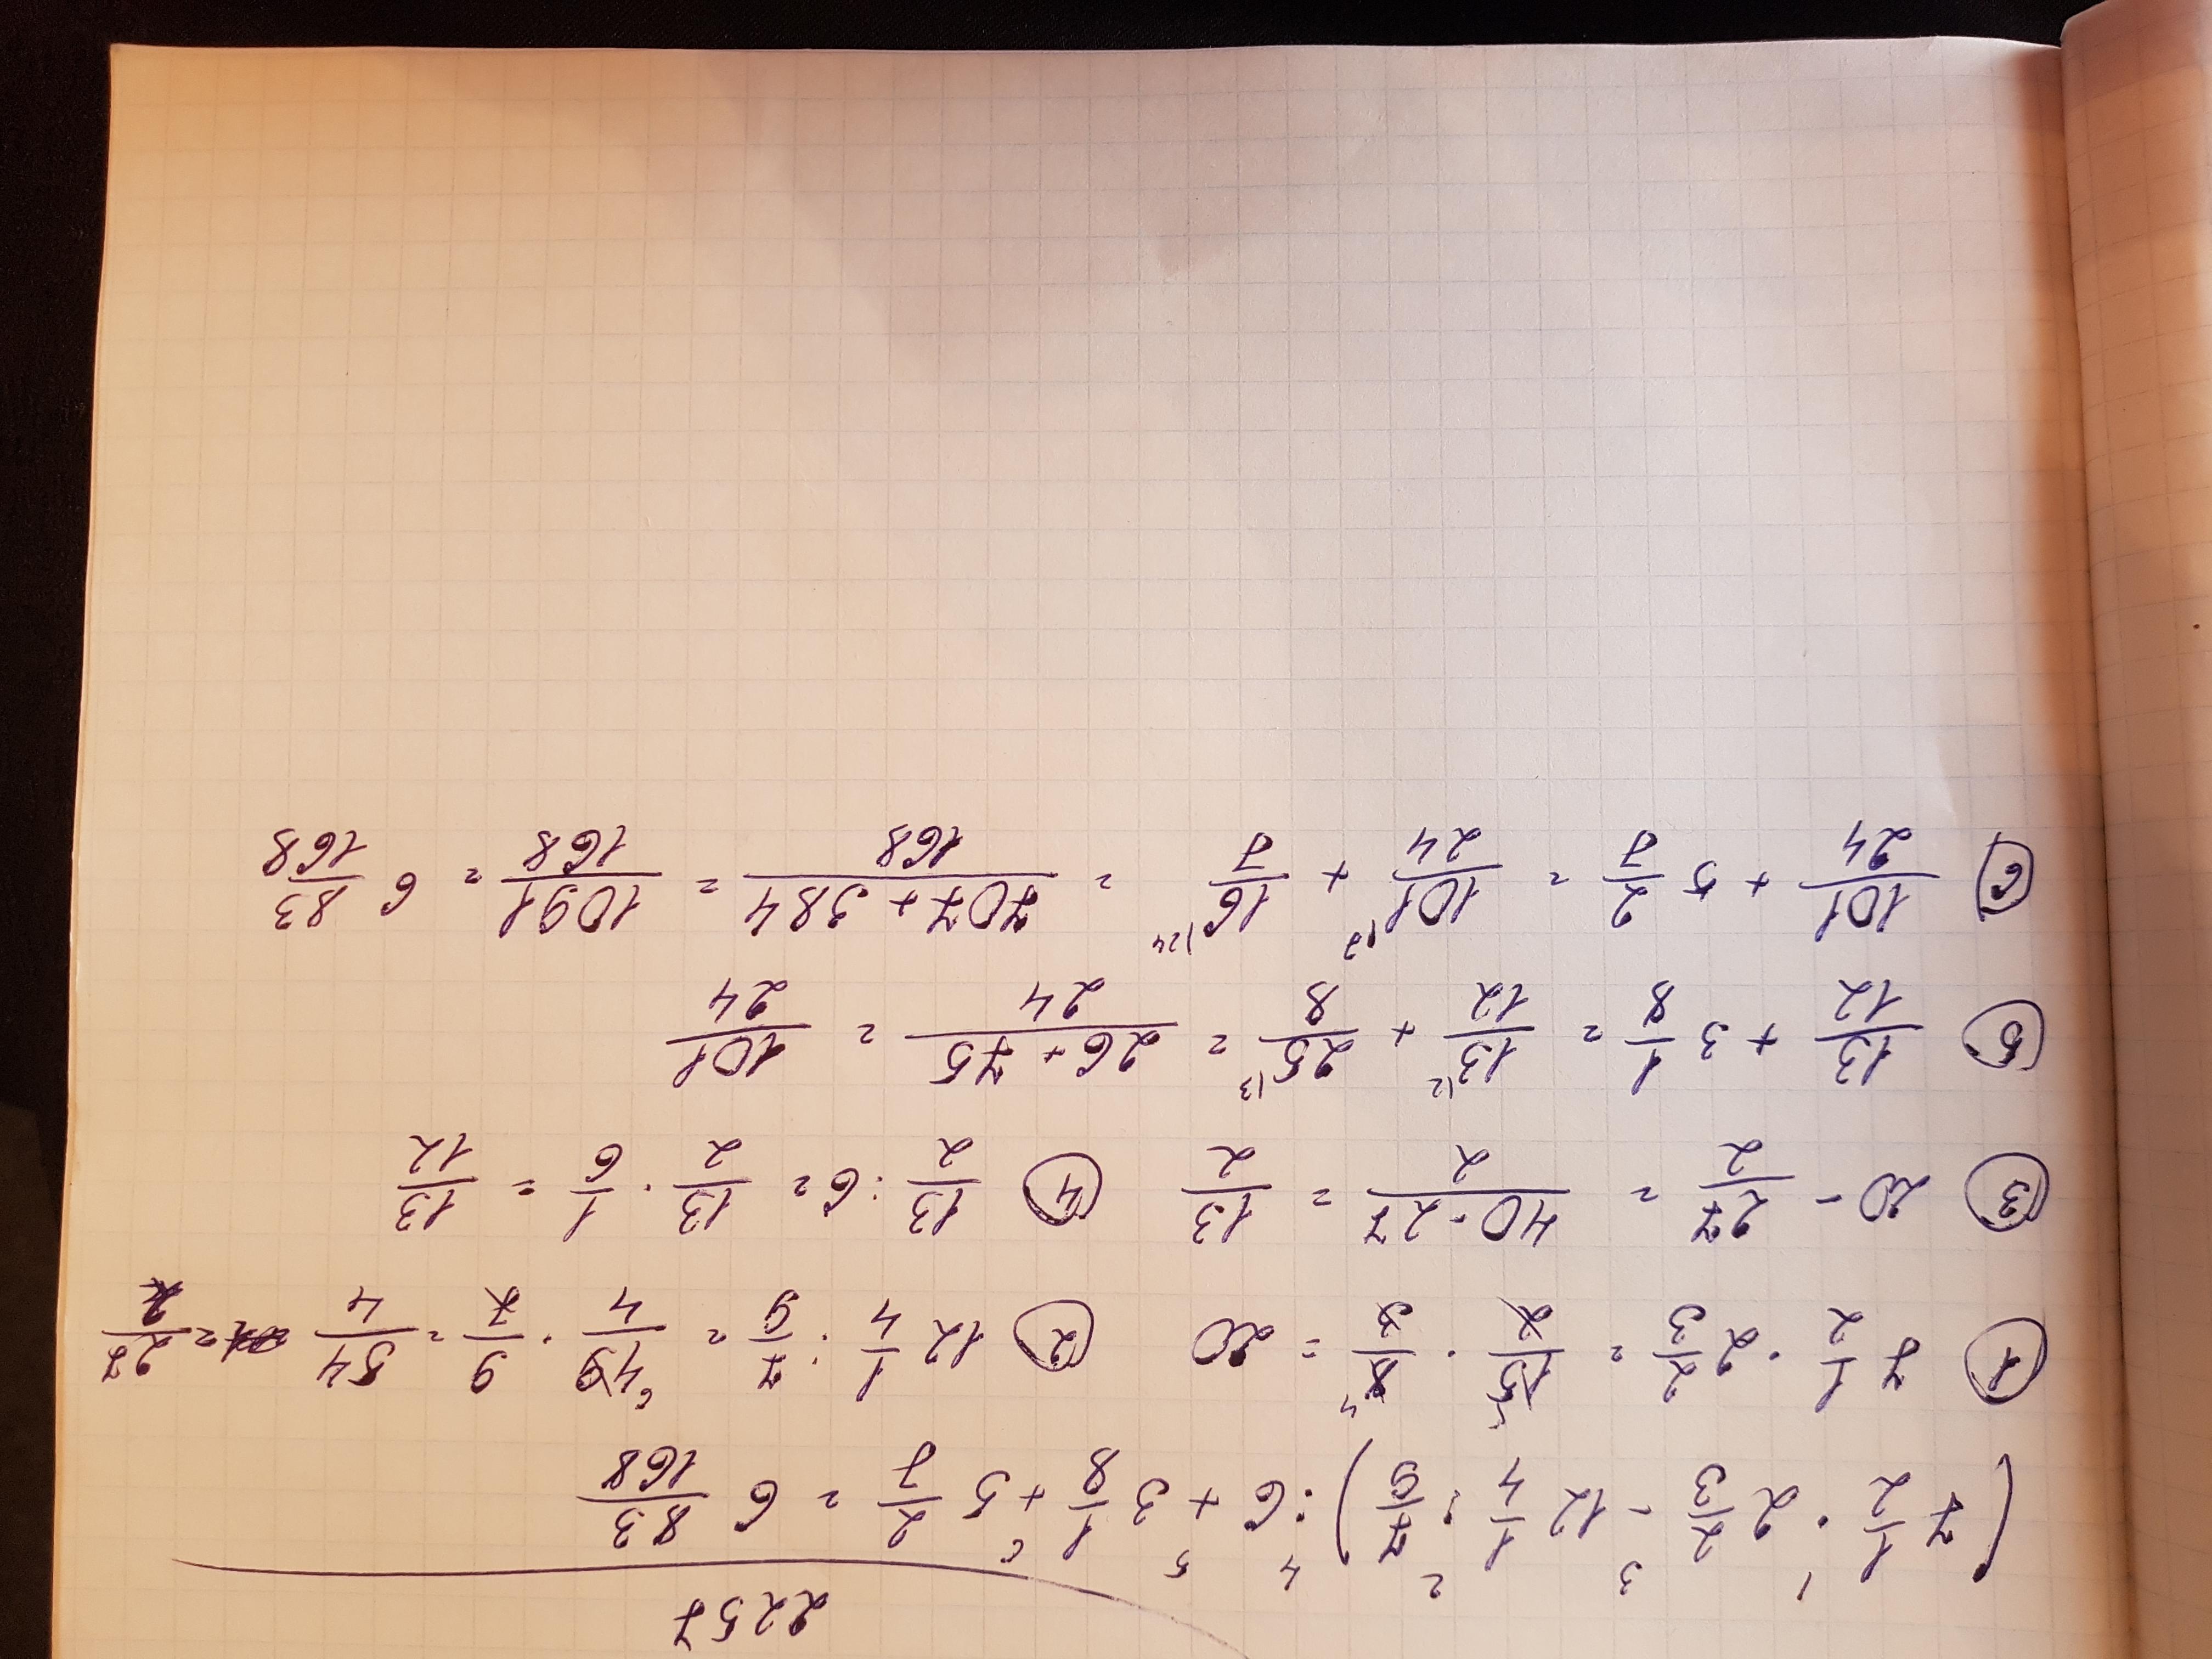 2257
1 3 2 4 5 6
(7 1/2 · 2 2/3 - 12 1/4 : 7/9) : 6 + 3 1/8 + 5 2/7 = 6 83/168
① 7 1/2 · 2 2/3 = 15/2 · 8/3 = 20 ② 12 1/4 : 7/9 = 49/4 · 9/7 = 54/4 = 27/2
③ 20 - 27/2 = 40-27/2 = 13/2 ④ 13/2 : 6 = 13/2 · 1/6 = 13/12
⑤ 13/12 + 3 1/8 = 13\2/12 + 25\3/8 = 26+75/24 = 101/24
⑥ 101/24 + 5 2/7 = 101\7/24 + 16\24/7 = 707+384/168 = 1091/168 = 6 83/168